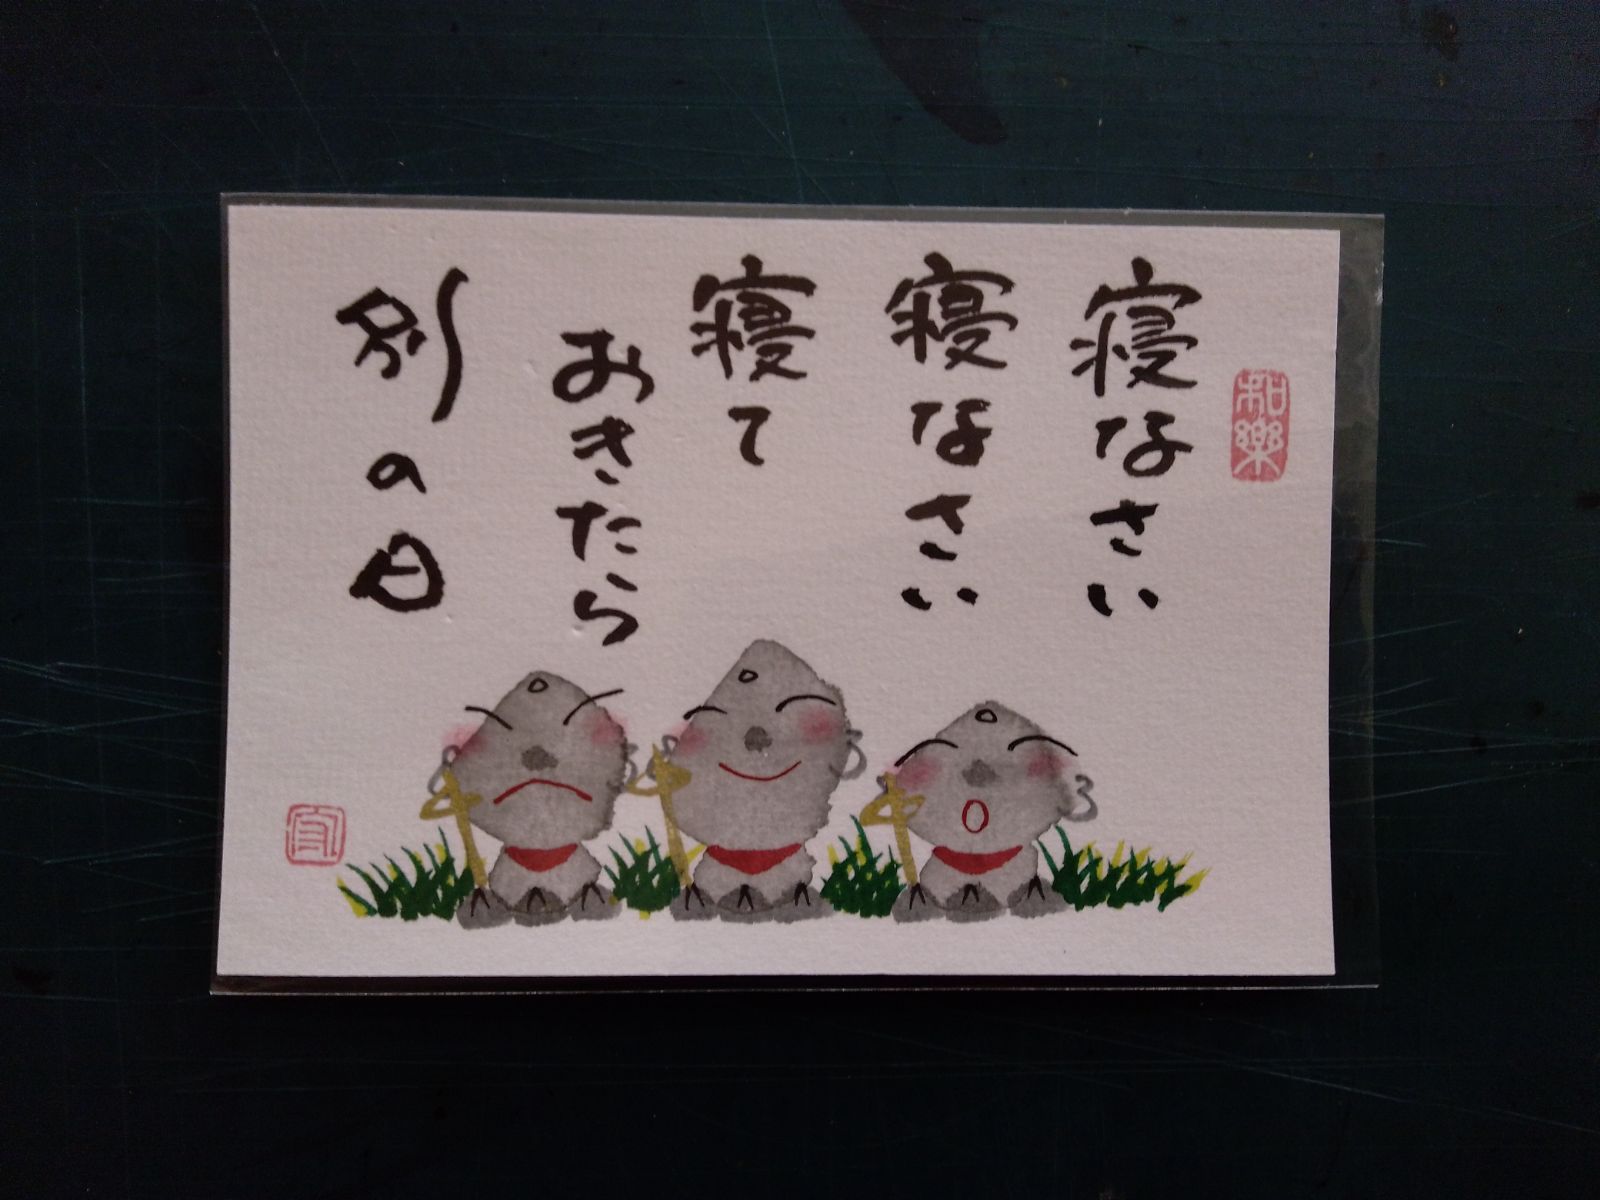 和樂
寝なさい
寝なさい
寝て
おきたら
別の日